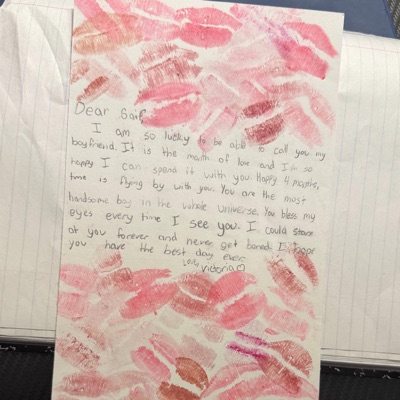 Dear Saif,
I am so lucky to be able to call you my
boyfriend. It is the month of love and I'm so
happy I can spend it with you. Happy 4 months,
time is flying by with you. You are the must
handsome boy in the whole universe. You bless my
eyes every time I see you. I could stare
at you forever and never get bored. I hope
you have the best day ever.
Love,
Victoria♡